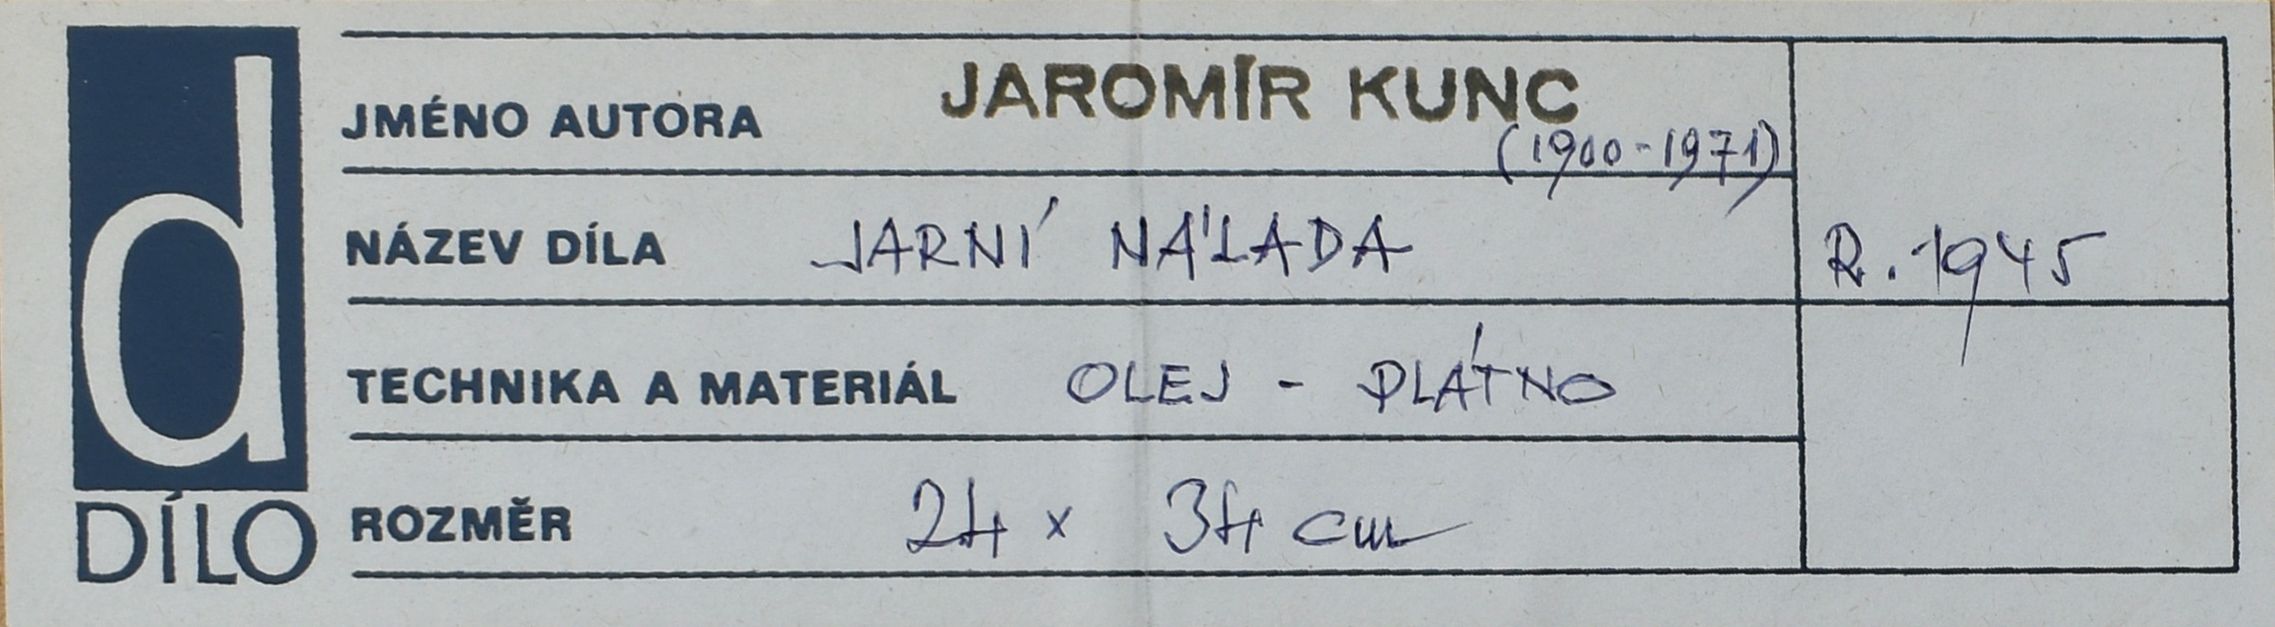 d
DÍLO
JMÉNO AUTORA JAROMÍR KUNC
(1900-1971)
NÁZEV DÍLA JARNÍ NÁLADA R. 1945
TECHNIKA A MATERIÁL OLEJ - PLÁTNO
ROZMĚR 24 x 34 cm